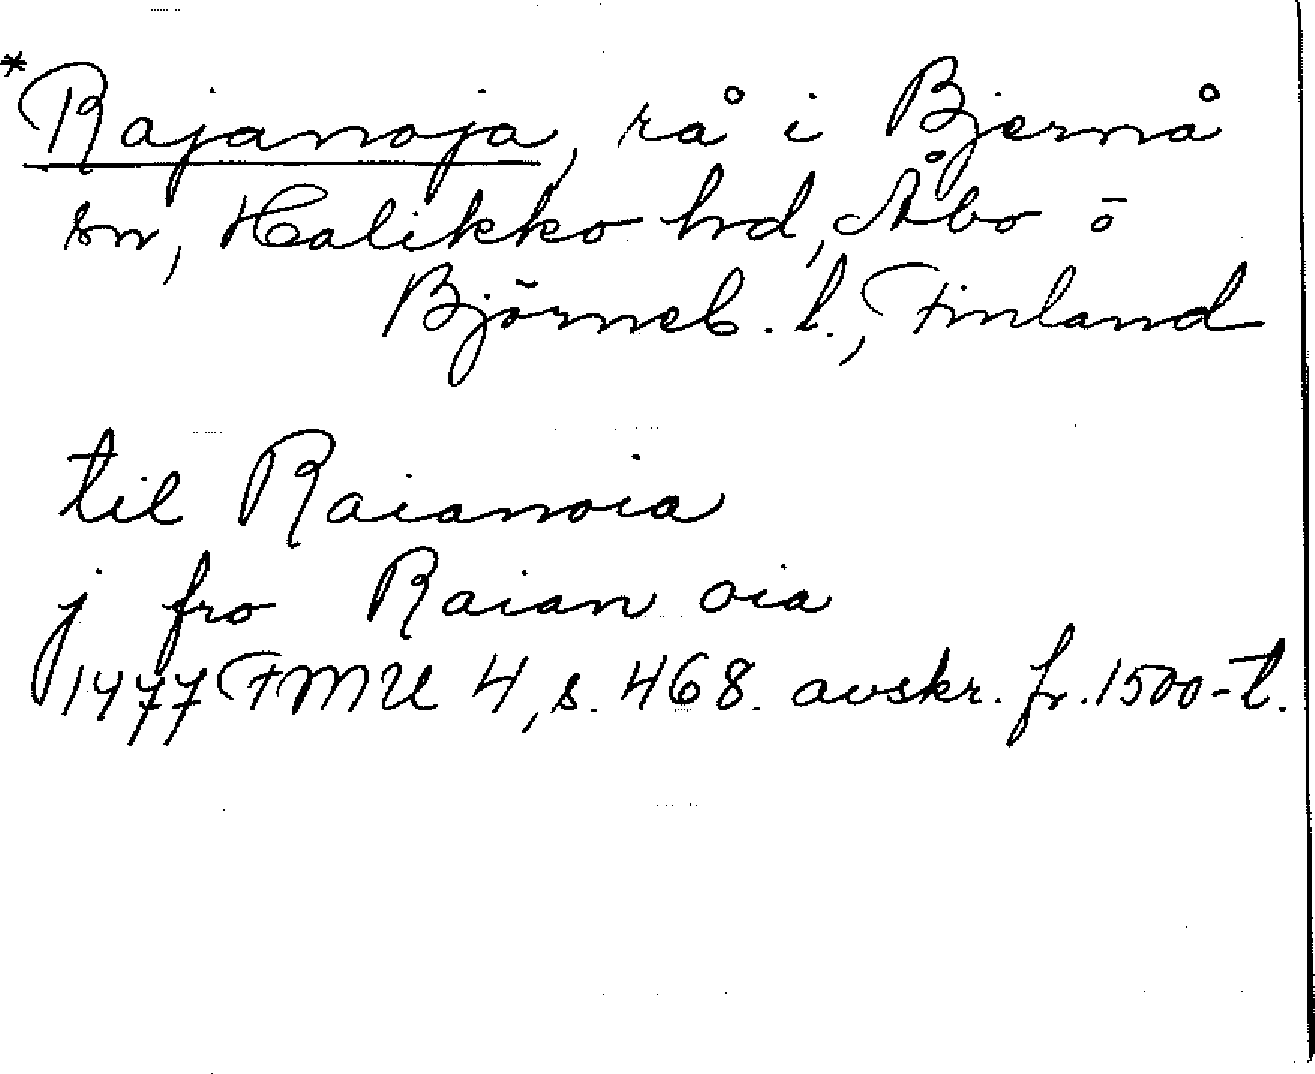 *Rajanoja, rå i Bjernå
sn, Halikko hrd, Åbo o
Björneb. l., Finland
til Raianoia
j fro Raian oia
1477 FMU 4, s. 468. avskr. fr. 1500-t.